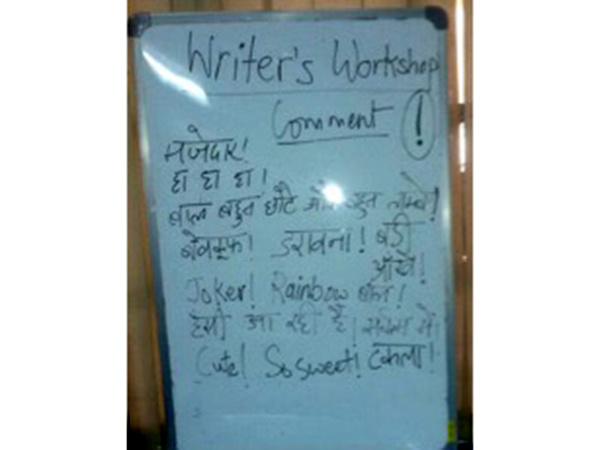 Writer's Workshop
Comment !
मजेदार!
हा हा हा!
बाल बहुत छोटे और बहुत लम्बे!
बेवकूफ! डरावना! बड़ी
आँखें!
Joker! Rainbow बाल!
हँसी आ रही है! में!
Cute! So sweet!